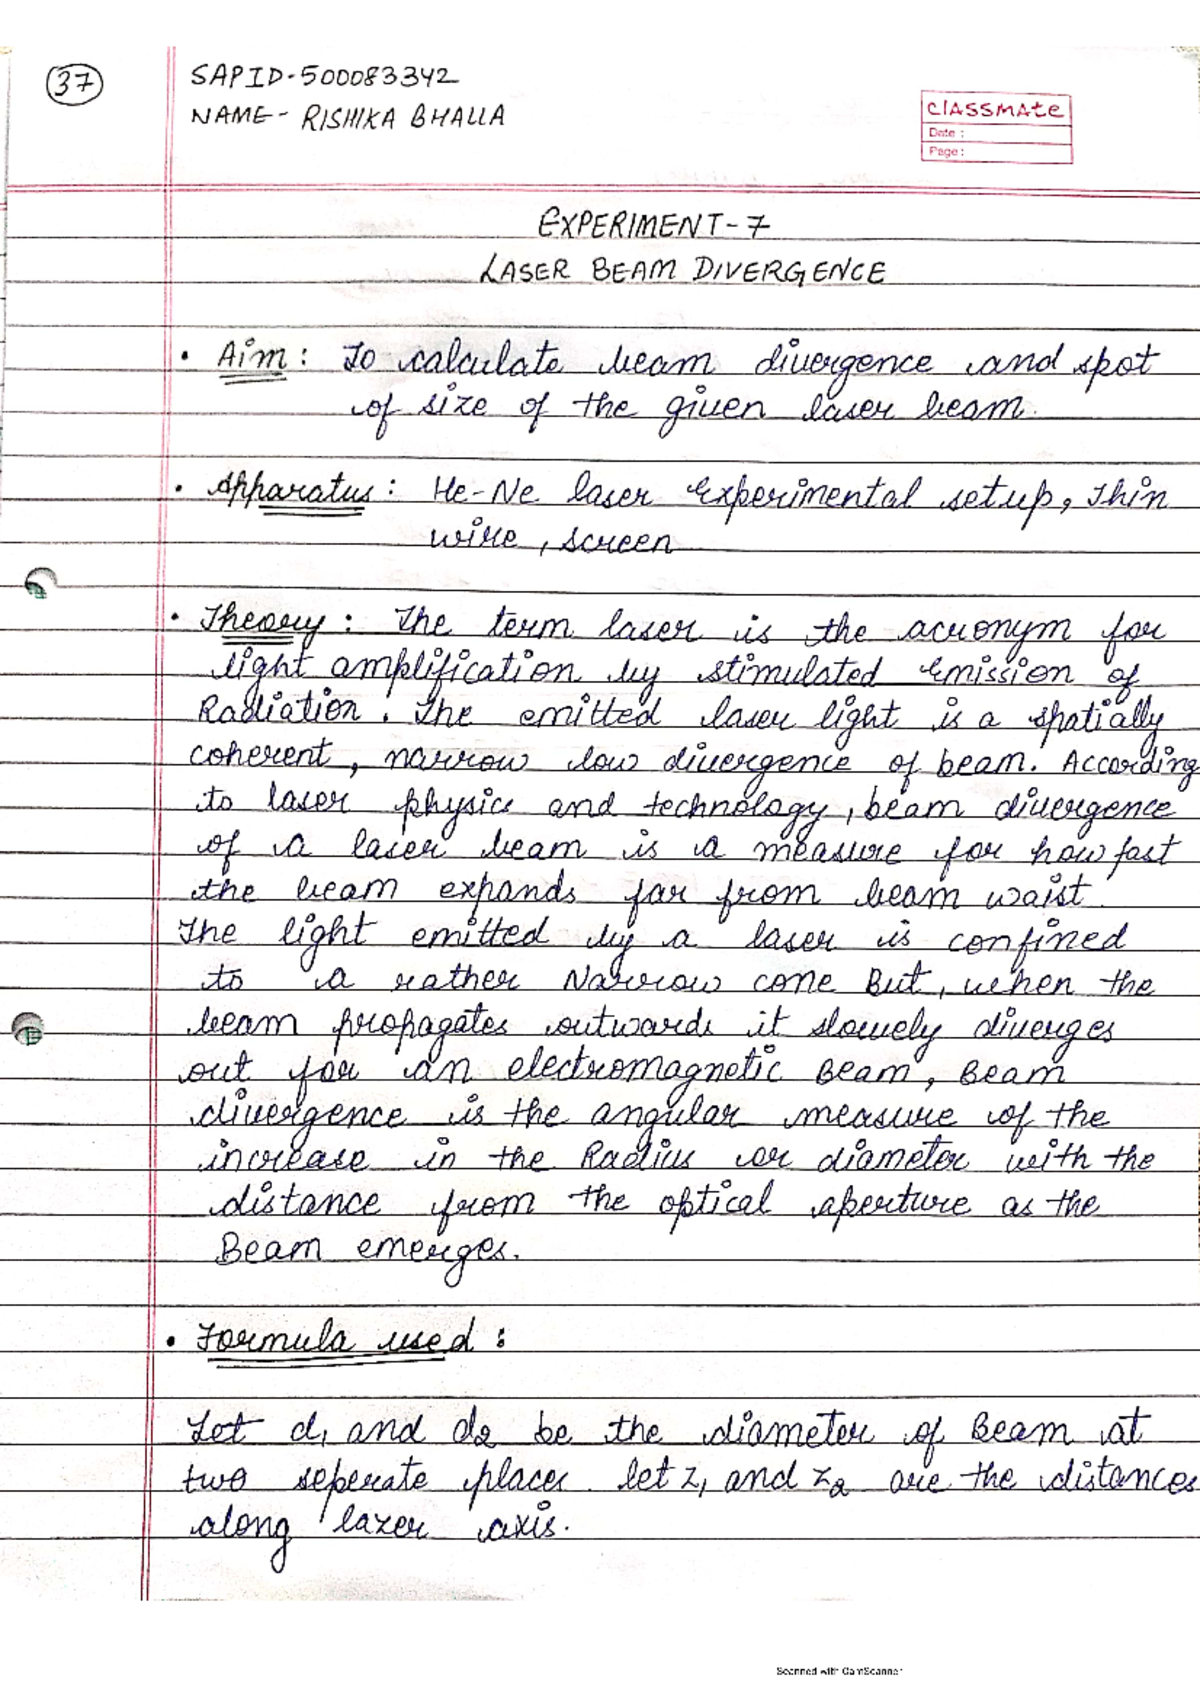 37
SAPID-500083342
NAME - RISHIKA BHALLA
classmate
Date :
Page :
EXPERIMENT-7
LASER BEAM DIVERGENCE
• Aim : To calculate beam divergence and spot
of size of the given laser beam.
• Apparatus : He-Ne laser experimental setup, thin
wire, screen
• Theory : The term laser is the acronym for
light amplification by stimulated emission of
Radiation. The emitted laser light is a spatially
coherent, narrow low divergence of beam. According
to laser physics and technology, beam divergence
of a laser beam is a measure for how fast
the beam expands far from beam waist.
The light emitted by a laser is confined
to a rather Narrow cone But, when the
beam propagates outwards it slowely diverges
out for an electromagnetic Beam, Beam
divergence is the angular measure of the
increase in the Radius or diameter with the
distance from the optical aperture as the
Beam emerges.
• Formula used :
Let d1 and d2 be the diameter of Beam at
two seperate places. let z1 and z2 are the distances
along lazer axis.
Scanned with CamScanner